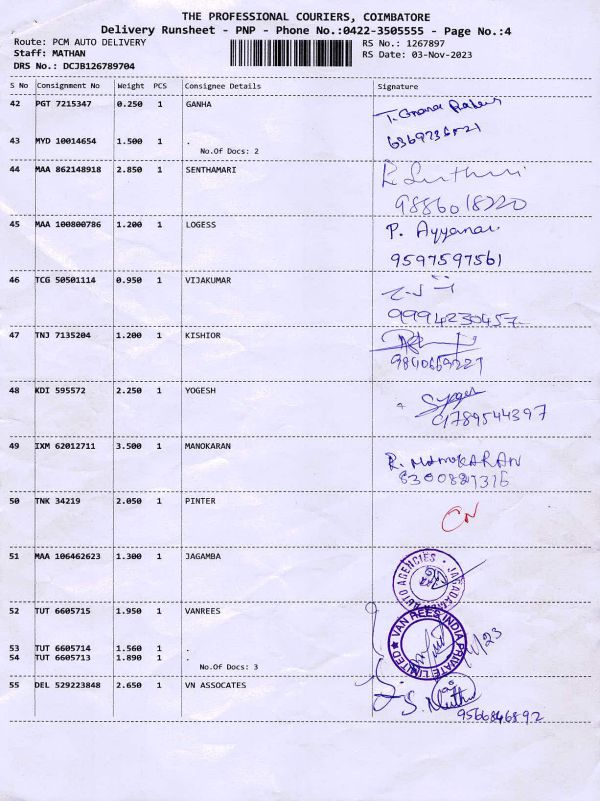 THE PROFESSIONAL COURIERS, COIMBATORE
Delivery Runsheet - PNP - Phone No.:0422-3505555 - Page No.:4
Route: PCM AUTO DELIVERY RS No.: 1267897
Staff: MATHAN RS Date: 03-Nov-2023
DRS No.: DCJB126789704
S No Consignment No Weight PCS Consignee Details Signature
42 PGT 7215347 0.250 1 GANHA
43 MYD 10014654 1.500 1 .
No.Of Docs: 2
44 MAA 862148918 2.850 1 SENTHAMARI
9886018220
45 MAA 100800786 1.200 1 LOGESS P. Ayyanar
9597597561
46 TCG 50501114 0.950 1 VIJAKUMAR
9994230457
47 TNJ 7135204 1.200 1 KISHIOR
9840669227
48 KDI 595572 2.250 1 YOGESH
9789544397
49 IXM 62012711 3.500 1 MANOKARAN R. MANOKARAN
50 TNK 34219 2.050 1 PINTER
51 MAA 106462623 1.300 1 JAGAMBA
AUTO AGENCIES
52 TUT 6605715 1.950 1 VANREES
VAN REES INDIA PRIVATE LIMITED
53 TUT 6605714 1.560 1 .
54 TUT 6605713 1.890 1 .
No.Of Docs: 3
55 DEL 529223848 2.650 1 VN ASSOCATES
9566846892